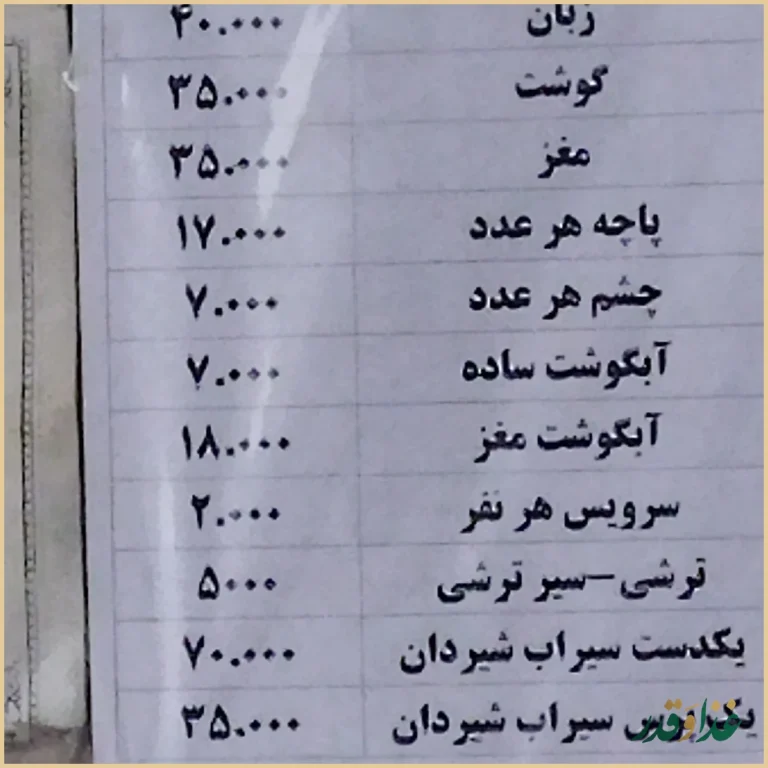 زبان ۴۰.۰۰۰
گوشت ۳۵.۰۰۰
مغز ۳۵.۰۰۰
پاچه هر عدد ۱۷.۰۰۰
چشم هر عدد ۷.۰۰۰
آبگوشت ساده ۷.۰۰۰
آبگوشت مغز ۱۸.۰۰۰
سرویس هر نفر ۲.۰۰۰
ترشی-سیر ترشی ۵۰۰۰
یکدست سیراب شیردان ۷۰.۰۰۰
یک پرس سیراب شیردان ۳۵.۰۰۰